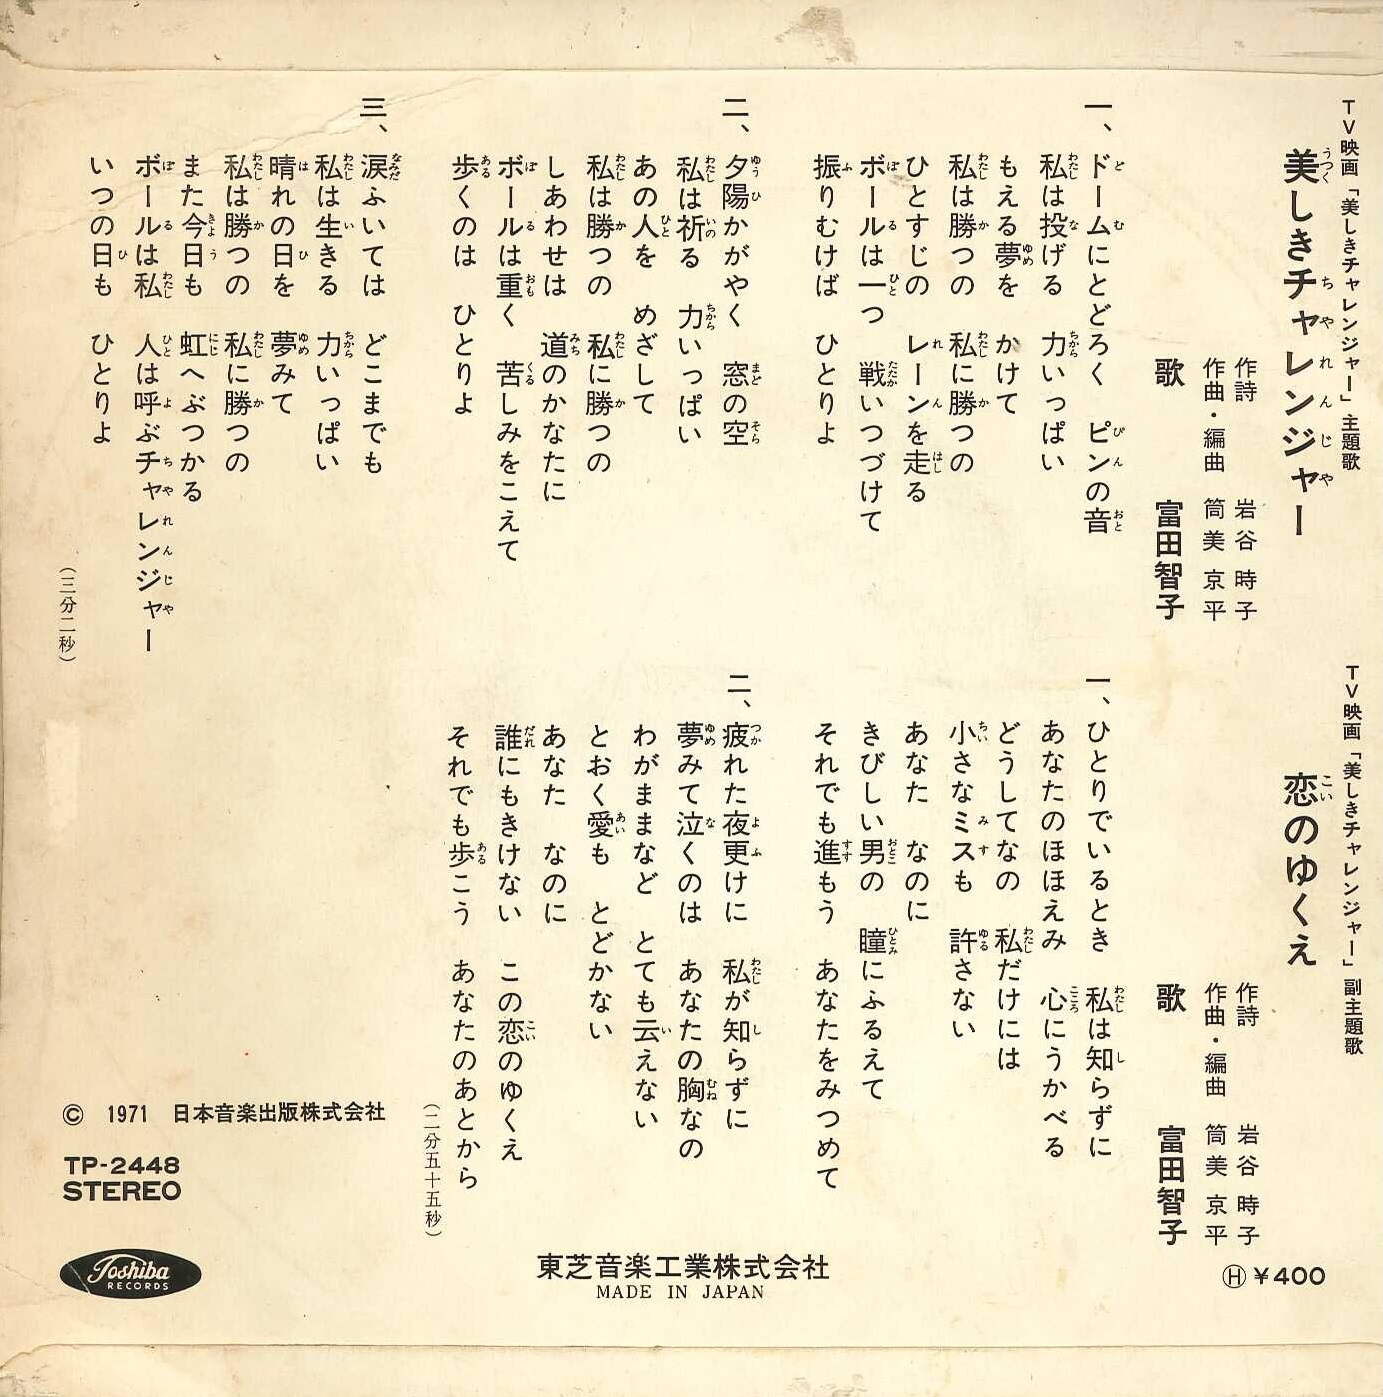 TV映画「美しきチャレンジャー」主題歌
美しきチャレンジャー
作詩 岩谷時子
作曲・編曲 筒美京平
歌 富田智子
一、ドームにとどろく ピンの音
私は投げる 力いっぱい
もえる夢を かけて
私は勝つの 私に勝つの
ひとすじの レーンを走る
ボールは一つ 戦いつづけて
振りむけば ひとりよ
二、夕陽かがやく 窓の空
私は祈る 力いっぱい
あの人を めざして
私は勝つの 私に勝つの
しあわせは 道のかなたに
ボールは重く 苦しみをこえて
歩くのは ひとりよ
三、涙ふいては どこまでも
私は生きる 力いっぱい
晴れの日を 夢みて
私は勝つの 私に勝つの
また今日も 虹へぶつかる
ボールは私 人は呼ぶチャレンジャー
いつの日も ひとりよ
(三分二秒)
TV映画「美しきチャレンジャー」副主題歌
恋のゆくえ
作詩 岩谷時子
作曲・編曲 筒美京平
歌 富田智子
一、ひとりでいるとき 私は知らずに
あなたのほほえみ 心にうかべる
どうしてなの 私だけには
小さなミスも 許さない
あなた なのに
きびしい男の 瞳にふるえて
それでも進もう あなたをみつめて
二、疲れた夜更けに 私が知らずに
夢みて泣くのは あなたの胸なの
わがままなど とても云えない
とおく愛も とどかない
あなた なのに
誰にもきけない この恋のゆくえ
それでも歩こう あなたのあとから
(二分五十五秒)
© 1971 日本音楽出版株式会社
TP-2448
STEREO
Toshiba
RECORDS
東芝音楽工業株式会社
MADE IN JAPAN
Ⓗ ¥400